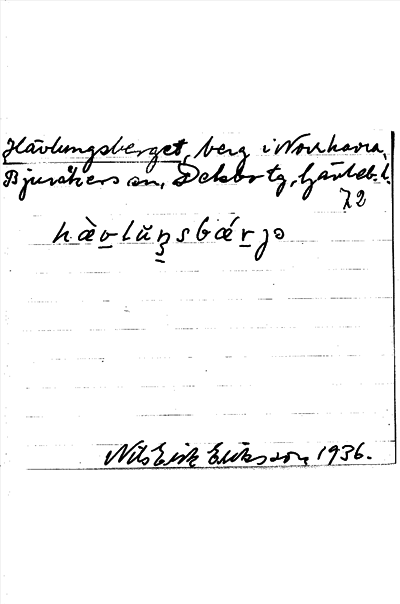 Hävlungsberget, berg i Norrhavra,
Bjuråkers sn, Delsbo tg, Gävleb. l.
72
hà̱vlŭŋsbá̱rjə
Nils Eric Eriksson, 1936.